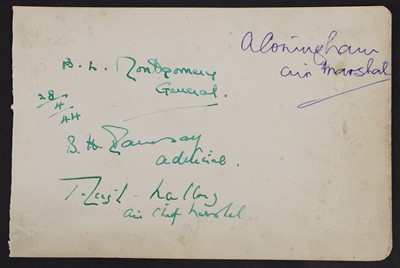 B. L. Montgomery
General.
A Coningham
Air Marshal
28
4
44
B. H. Ramsay
Admiral.
T. Leigh-Mallory
Air Chief Marshal